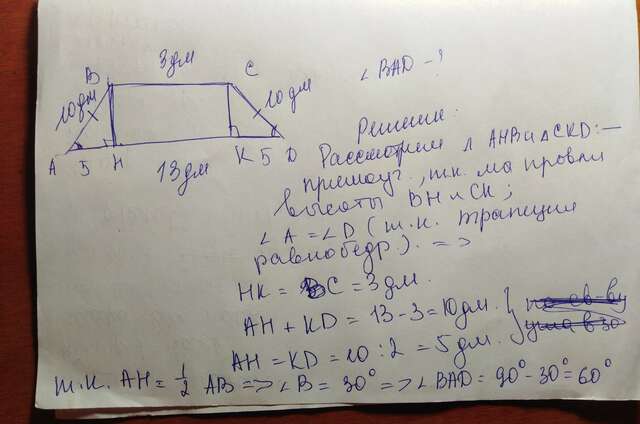 3дм
B C
∠ BAD - ?
10дм 10дм
A 5 H K 5 D
13дм
Решение:
Рассмотрим △ AHB и △ CKD: —
прямоуг., т.к. мы провели
высоты BH и CK;
∠ A = ∠ D (т.к. трапеция
равнобедр.). =>
HK = BC = 3 дм.
AH + KD = 13 - 3 = 10 дм.
AH = KD = 10 : 2 = 5 дм.
т.к. AH = 1/2 AB => ∠ B = 30° => ∠ BAD = 90° - 30° = 60°